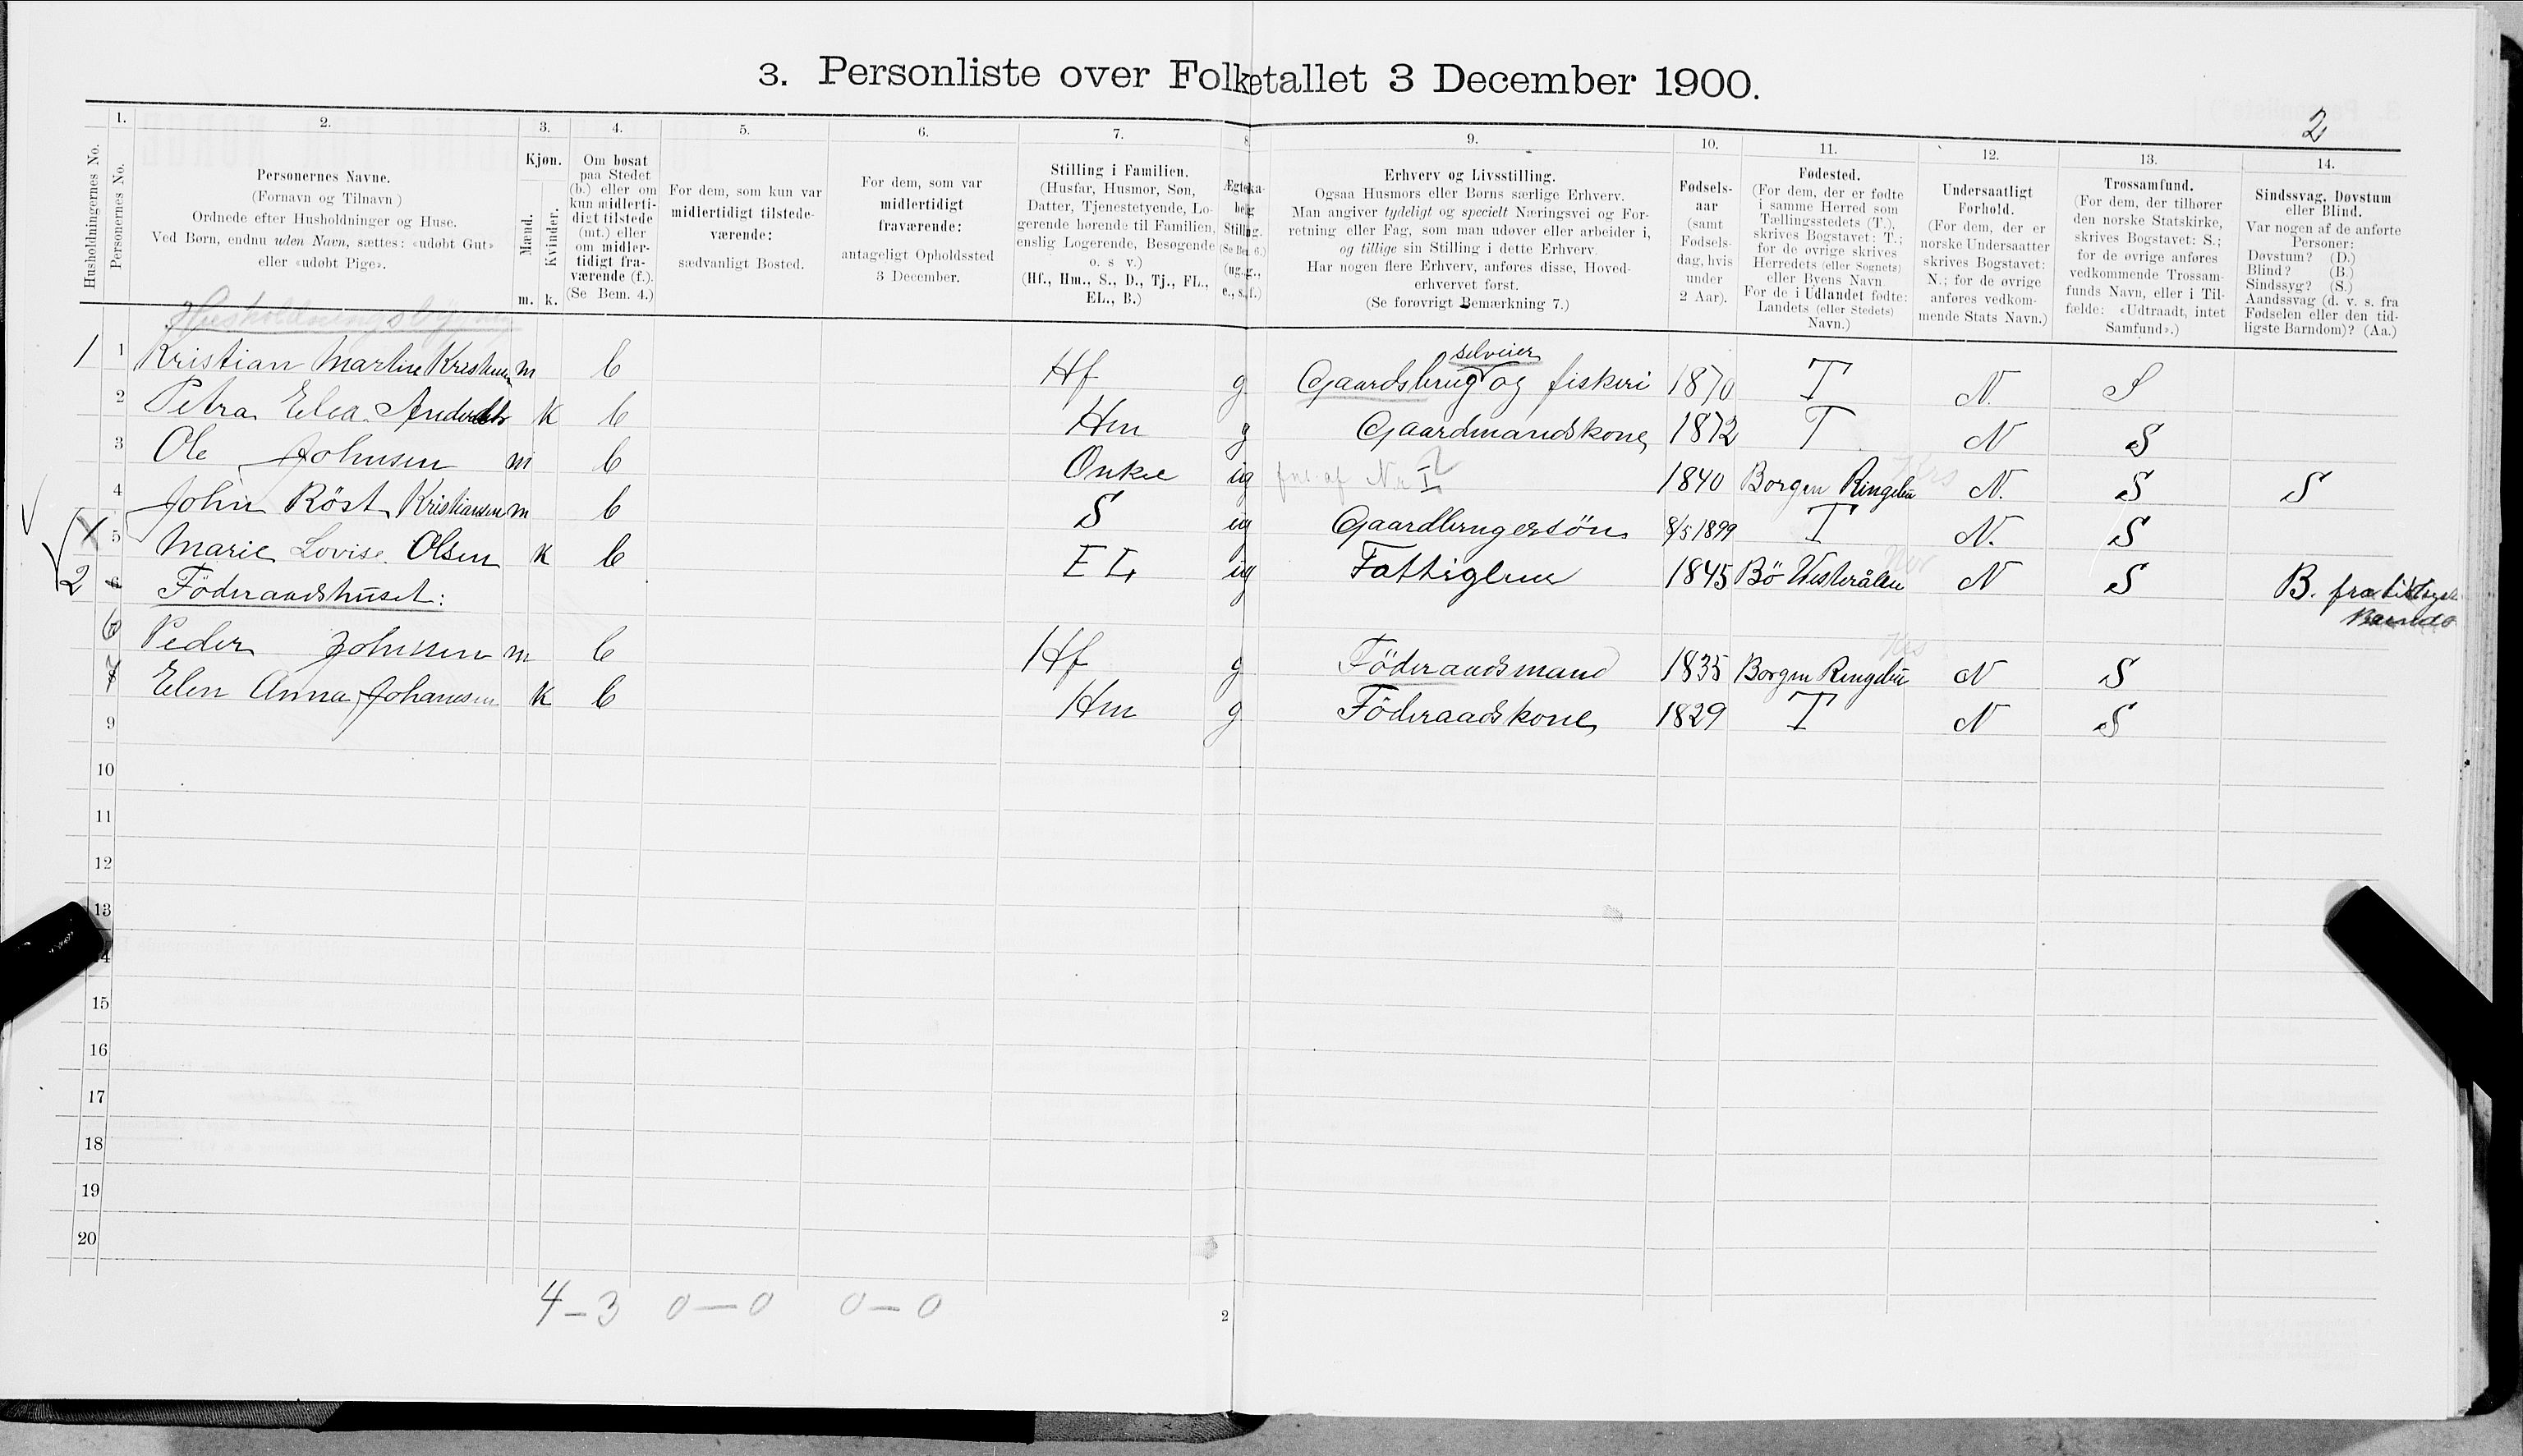 3. Personliste over Folketallet 3 December 1900.
2
Husholdningernes No.
1.
Personernes No.
2.
Personernes Navne.
(Fornavn og Tilnavn)
Ordnede efter Husholdninger og Huse.
Ved Børn, endnu uden Navn, sættes: «udøbt Gut»
eller «udøbt Pige».
3.
Kjøn.
Mænd.
Kvinder.
m. k.
4.
Om bosat
paa Stedet
(b.) eller om
kun midlerti-
digt tilstede
(mt.) eller
om midler-
tidigt fra-
værende (f.).
(Se Bem. 4.)
5.
For dem, som kun var
midlertidigt tilstede-
værende:
sædvanligt Bosted.
6.
For dem, som var
midlertidigt
fraværende:
antageligt Opholdssted
3 December.
7.
Stilling i Familien.
(Husfar, Husmor, Søn,
Datter, Tjenestetyende, Lo-
gerende hørende til Familien,
enslig Logerende, Besøgende
o. s. v.)
(Hf., Hm., S., D., Tj., FL.,
EL., B.)
8
Ægteska-
belig
Stilling.
(Se Bem. 6.)
(ug., g.,
e., s., f.)
9.
Erhverv og Livsstilling.
Ogsaa Husmors eller Børns særlige Erhverv.
Man angiver tydeligt og specielt Næringsvei og For-
retning eller Fag, som man udøver eller arbeider i,
og tillige sin Stilling i dette Erhverv.
Har nogen flere Erhverv, anføres disse, Hoved-
erhvervet først.
(Se forøvrigt Bemærkning 7.)
10.
Fødsels-
aar
(samt
Fødsels-
dag, hvis
under
2 Aar).
11.
Fødested.
(For dem, der er fødte
i samme Herred som
Tællingsstedets (T.),
skrives Bogstavet: T.;
for de øvrige skrives
Herredets (eller Sognets)
eller Byens Navn
For de i Udlandet fødte:
Landets (eller Stedets)
Navn.)
12.
Undersaatligt
Forhold.
(For dem, der er
norske Undersaatter
skrives Bogstavet:
N.; for de øvrige
anføres vedkom-
mende Stats Navn.)
13.
Trossamfund.
(For dem, der tilhører
den norske Statskirke,
skrives Bogstavet: S.;
for de øvrige anføres
vedkommende Trossam-
funds Navn, eller i Til-
fælde: «Udtraadt, intet
Samfund».)
14.
Sindssvag, Døvstum
eller Blind.
Var nogen af de anførte
Personer:
Døvstum? (D.)
Blind? (B.)
Sindssyg? (S.)
Aandssvag (d. v. s. fra
Fødselen eller den tid-
ligste Barndom)? (Aa.)
selveier
1 1 Kristian Martin Kristensen m b Hf g Gaardsbrug og fiskeri 1870 T N. S
2 Petra Elea k b Hm g Gaardmandskone 1872 T N S
3 Ole Johnsen m b Onkel ug 1840 Borgen Ringebu N. S S
4 John Röst Kristiansen m b S ug Gaardbrugersön 8/5 1899 T N. S
5 Marie Lovise Olsen k b EL ug Fattiglem 1845 Bö Vesterålen N S B. fra
2 6 Föderaadshuset:
6 Peder Johnsen m b Hf g Föderaadsmand 1835 Borgen Ringebu N S
7 Elen Anna Johannsen k b Hm g Föderaadskone 1829 T N S
9
10
11
12
13
14
15
16
17
18
19
20
4-3 0-0 0-0
2